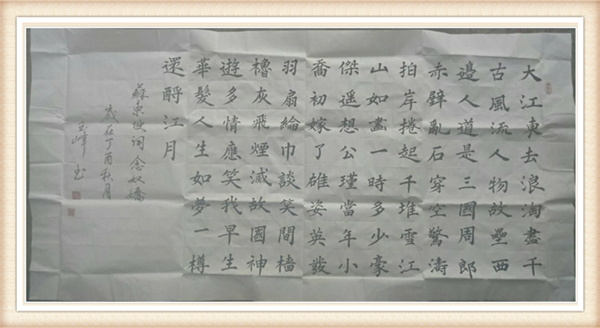 大江東去浪淘盡千
古風流人物故壘西
邊人道是三國周郎
赤壁亂石穿空驚濤
拍岸捲起千堆雪江
山如畫一時多少豪
傑遥想公瑾當年小
喬初嫁了雄姿英發
羽扇綸巾談笑間檣
櫓灰飛煙滅故國神
遊多情應笑我早生
華髮人生如夢一樽
還酹江月
蘇東坡词念奴嬌
歲在丁酉秋月
峰书